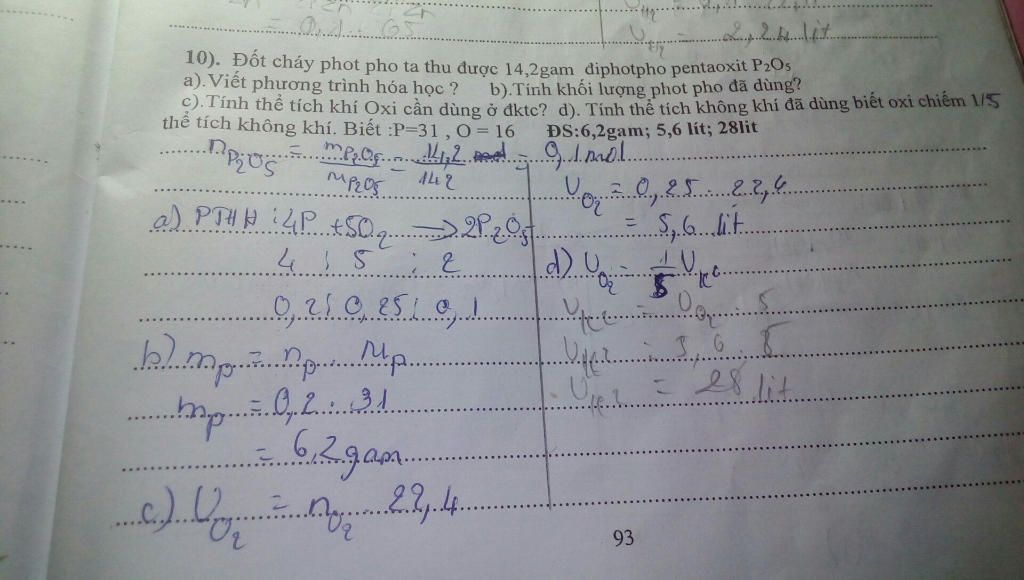 = 0,1 . 65
= 2,24 lit
10). Đốt cháy phot pho ta thu được 14,2gam điphotpho pentaoxit P₂O₅
a).Viết phương trình hóa học ? b).Tính khối lượng phot pho đã dùng?
c).Tính thể tích khí Oxi cần dùng ở đktc? d). Tính thể tích không khí đã dùng biết oxi chiếm 1/5
thể tích không khí. Biết :P=31 , O = 16 ĐS:6,2gam; 5,6 lít; 28lit
nP₂O₅ = mP₂O₅/MP₂O₅ = 14,2/142 = 0,1 mol
a) PTHH : 4P + 5O₂ → 2P₂O₅
4 : 5 : 2
0,2 : 0,25 : 0,1
b) mP = nP . MP
mP = 0,2 . 31
= 6,2 gam
c) VO₂ = nO₂ . 22,4
VO₂ = 0,25 . 22,4
= 5,6 lít
d) VO₂ = 1/5 Vkk
Vkk = VO₂ . 5
Vkk = 5,6 . 5
Vkk = 28 lit
93